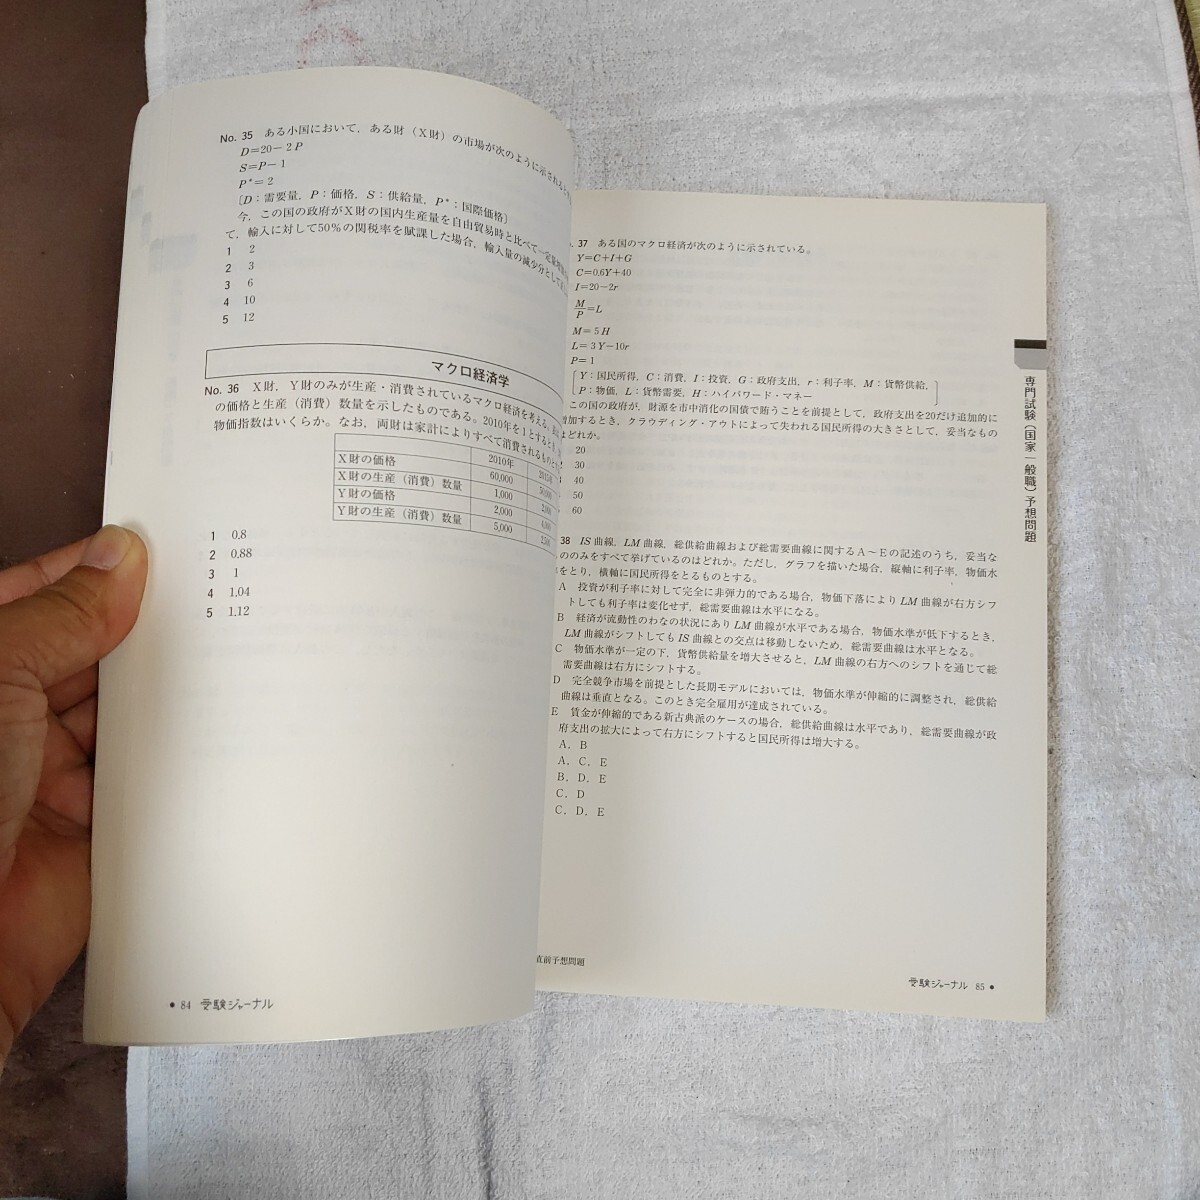 No. 35 ある小国において，ある財（X財）の市場が次のように示される
D=20－2P
S=P－1
P*=2
［D：需要量，P：価格，S：供給量，P*：国際価格］
今，この国の政府がX財の国内生産量を自由貿易時と比べて一定量
て，輸入に対して50％の関税率を賦課した場合，輸入量の減少分として
1 2
2 3
3 6
4 10
5 12
マクロ経済学
No. 36 X財，Y財のみが生産・消費されているマクロ経済を考える。
の価格と生産（消費）数量を示したものである。2010年を1とすると，
物価指数はいくらか。なお，両財は家計によりすべて消費されるものと
2010年
X財の価格 60,000
X財の生産（消費）数量 1,000
Y財の価格 2,000
Y財の生産（消費）数量 5,000
1 0.8
2 0.88
3 1
4 1.04
5 1.12
● 84 受験ジャーナル
37 ある国のマクロ経済が次のように示されている。
Y=C+I+G
C=0.6Y+40
I=20－2r
M/P=L
M=5H
L=3Y－10r
P=1
［Y：国民所得，C：消費，I：投資，G：政府支出，r：利子率，M：貨幣供給，
P：物価，L：貨幣需要，H：ハイパワード・マネー］
この国の政府が，財源を市中消化の国債で賄うことを前提として，政府支出を20だけ追加的に
増加するとき，クラウディング・アウトによって失われる国民所得の大きさとして，妥当なもの
はどれか。
20
30
40
50
60
38 IS曲線，LM曲線，総供給曲線および総需要曲線に関するA〜Eの記述のうち，妥当な
もののみをすべて挙げているのはどれか。ただし，グラフを描いた場合，縦軸に利子率，物価水
準をとり，横軸に国民所得をとるものとする。
A 投資が利子率に対して完全に非弾力的である場合，物価下落によりLM曲線が右方シフ
トしても利子率は変化せず，総需要曲線は水平になる。
B 経済が流動性のわなの状況にありLM曲線が水平である場合，物価水準が低下するとき，
LM曲線がシフトしてもIS曲線との交点は移動しないため，総需要曲線は水平となる。
C 物価水準が一定の下，貨幣供給量を増大させると，LM曲線の右方へのシフトを通じて総
需要曲線は右方にシフトする。
D 完全競争市場を前提とした長期モデルにおいては，物価水準が伸縮的に調整され，総供給
曲線は垂直となる。このとき完全雇用が達成されている。
E 賃金が伸縮的である新古典派のケースの場合，総供給曲線は水平であり，総需要曲線が政
府支出の拡大によって右方にシフトすると国民所得は増大する。
A，B
A，C，E
B，D，E
C，D
C，D，E
直前予想問題
受験ジャーナル 85 ●
専門試験〔国家一般職〕予想問題